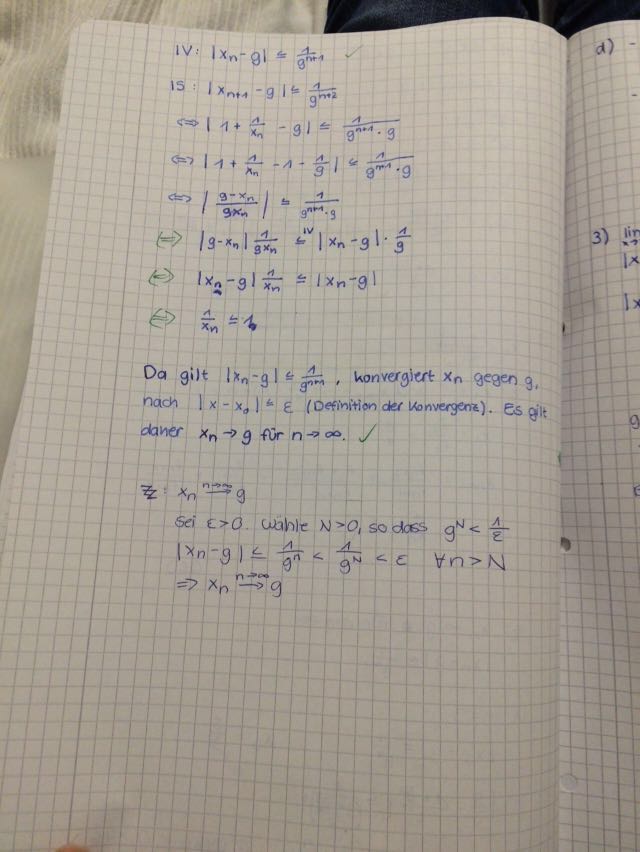 IV: |xₙ - g| ≤ 1/gⁿ⁺¹ ✓
IS: |xₙ₊₁ - g| ≤ 1/gⁿ⁺²
⇔ | 1 + 1/xₙ - g| ≤ 1/(gⁿ⁺¹ · g)
⇔ | 1 + 1/xₙ - 1 - 1/g | ≤ 1/(gⁿ⁺¹ · g)
⇔ | (g-xₙ)/(gxₙ) | ≤ 1/(gⁿ⁺¹ · g)
⇔ |g-xₙ| 1/(gxₙ) ≤ᴵⱽ |xₙ - g| · 1/g
⇔ |xₙ - g| 1/xₙ ≤ |xₙ - g|
⇔ 1/xₙ ≤ 1
Da gilt |xₙ - g| ≤ 1/gⁿ⁺¹, konvergiert xₙ gegen g,
nach |x - x₀| ≤ ε (Definition der Konvergenz). Es gilt
daher xₙ → g für n → ∞. ✓
ZZ: xₙ →(n→∞) g
Sei ε > 0. Wähle N > 0, so dass gᴺ < 1/ε
|xₙ - g| ≤ 1/gⁿ < 1/gᴺ < ε ∀n < N
⇒ xₙ →(n→∞) g
d) -
3) lim
|x
|x